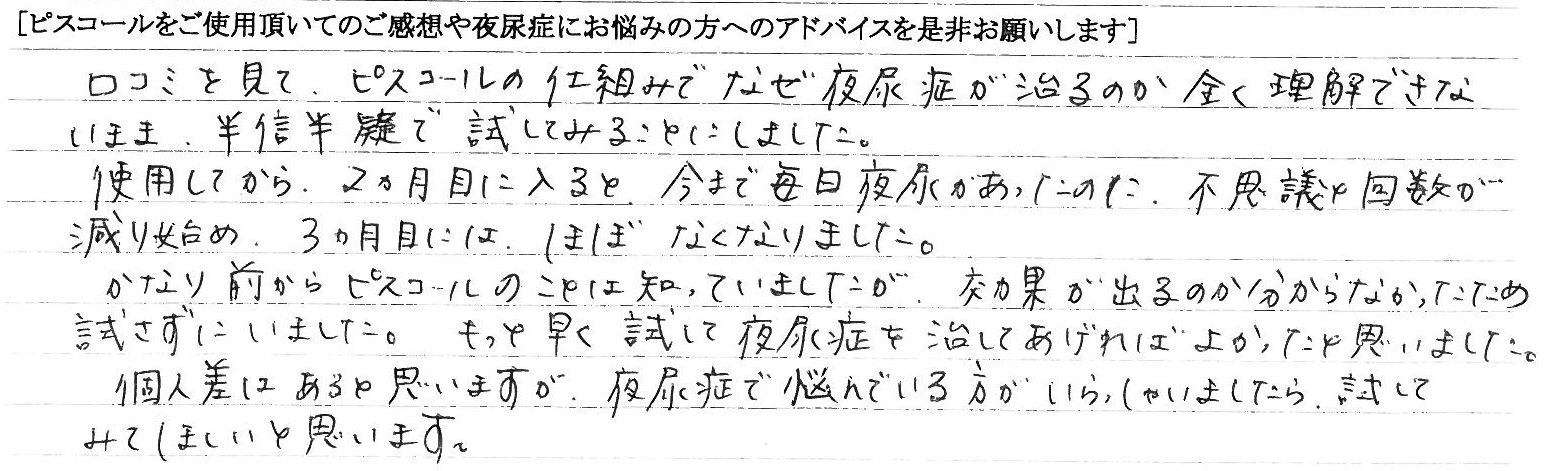 [ピスコールをご使用頂いてのご感想や夜尿症にお悩みの方へのアドバイスを是非お願いします]
口コミを見て、ピスコールの仕組みでなぜ夜尿症が治るのか全く理解できな
いまま、半信半疑で試してみることにしました。
使用してから、2ヵ月目に入ると、今まで毎日夜尿があったのに、不思議と回数が
減り始め、3ヵ月目には、ほぼなくなりました。
かなり前からピスコールのことは知っていましたが、効果が出るのか分からなかったため
試さずにいました。もっと早く試して夜尿症を治してあげればよかったと思いました。
個人差はあると思いますが、夜尿症で悩んでいる方がいらっしゃいましたら、試して
みてほしいと思います。